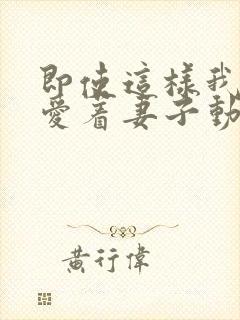 即使這樣我
愛着妻子動
黃行偉